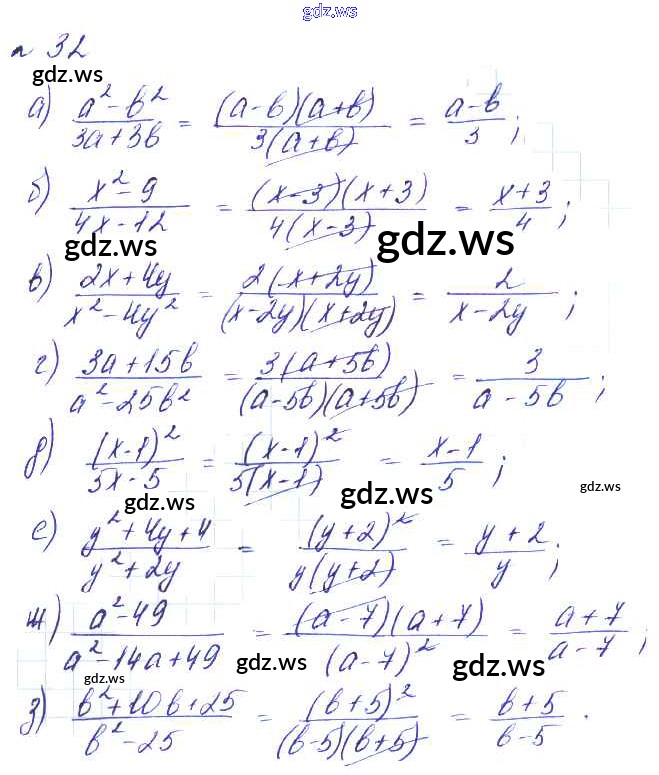 gdz.ws
n 32
gdz.ws
а) (a² - b²)/(3a + 3b) = ((a - b)(a + b))/(3(a + b)) = (a - b)/3 ;
б) (x² - 9)/(4x - 12) = ((x - 3)(x + 3))/(4(x - 3)) = (x + 3)/4 ;
gdz.ws gdz.ws
в) (2x + 4y)/(x² - 4y²) = (2(x + 2y))/((x - 2y)(x + 2y)) = 2/(x - 2y) ;
г) (3a + 15b)/(a² - 25b²) = (3(a + 5b))/((a - 5b)(a + 5b)) = 3/(a - 5b) ;
д) (x - 1)²/(5x - 5) = (x - 1)²/(5(x - 1)) = (x - 1)/5 ;
gdz.ws gdz.ws gdz.ws
е) (y² + 4y + 4)/(y² + 2y) = (y + 2)²/(y(y + 2)) = (y + 2)/y ;
ж) (a² - 49)/(a² - 14a + 49) = ((a - 7)(a + 7))/(a - 7)² = (a + 7)/(a - 7) ;
gdz.ws gdz.ws gdz.ws
з) (b² + 10b + 25)/(b² - 25) = (b + 5)²/((b - 5)(b + 5)) = (b + 5)/(b - 5) .